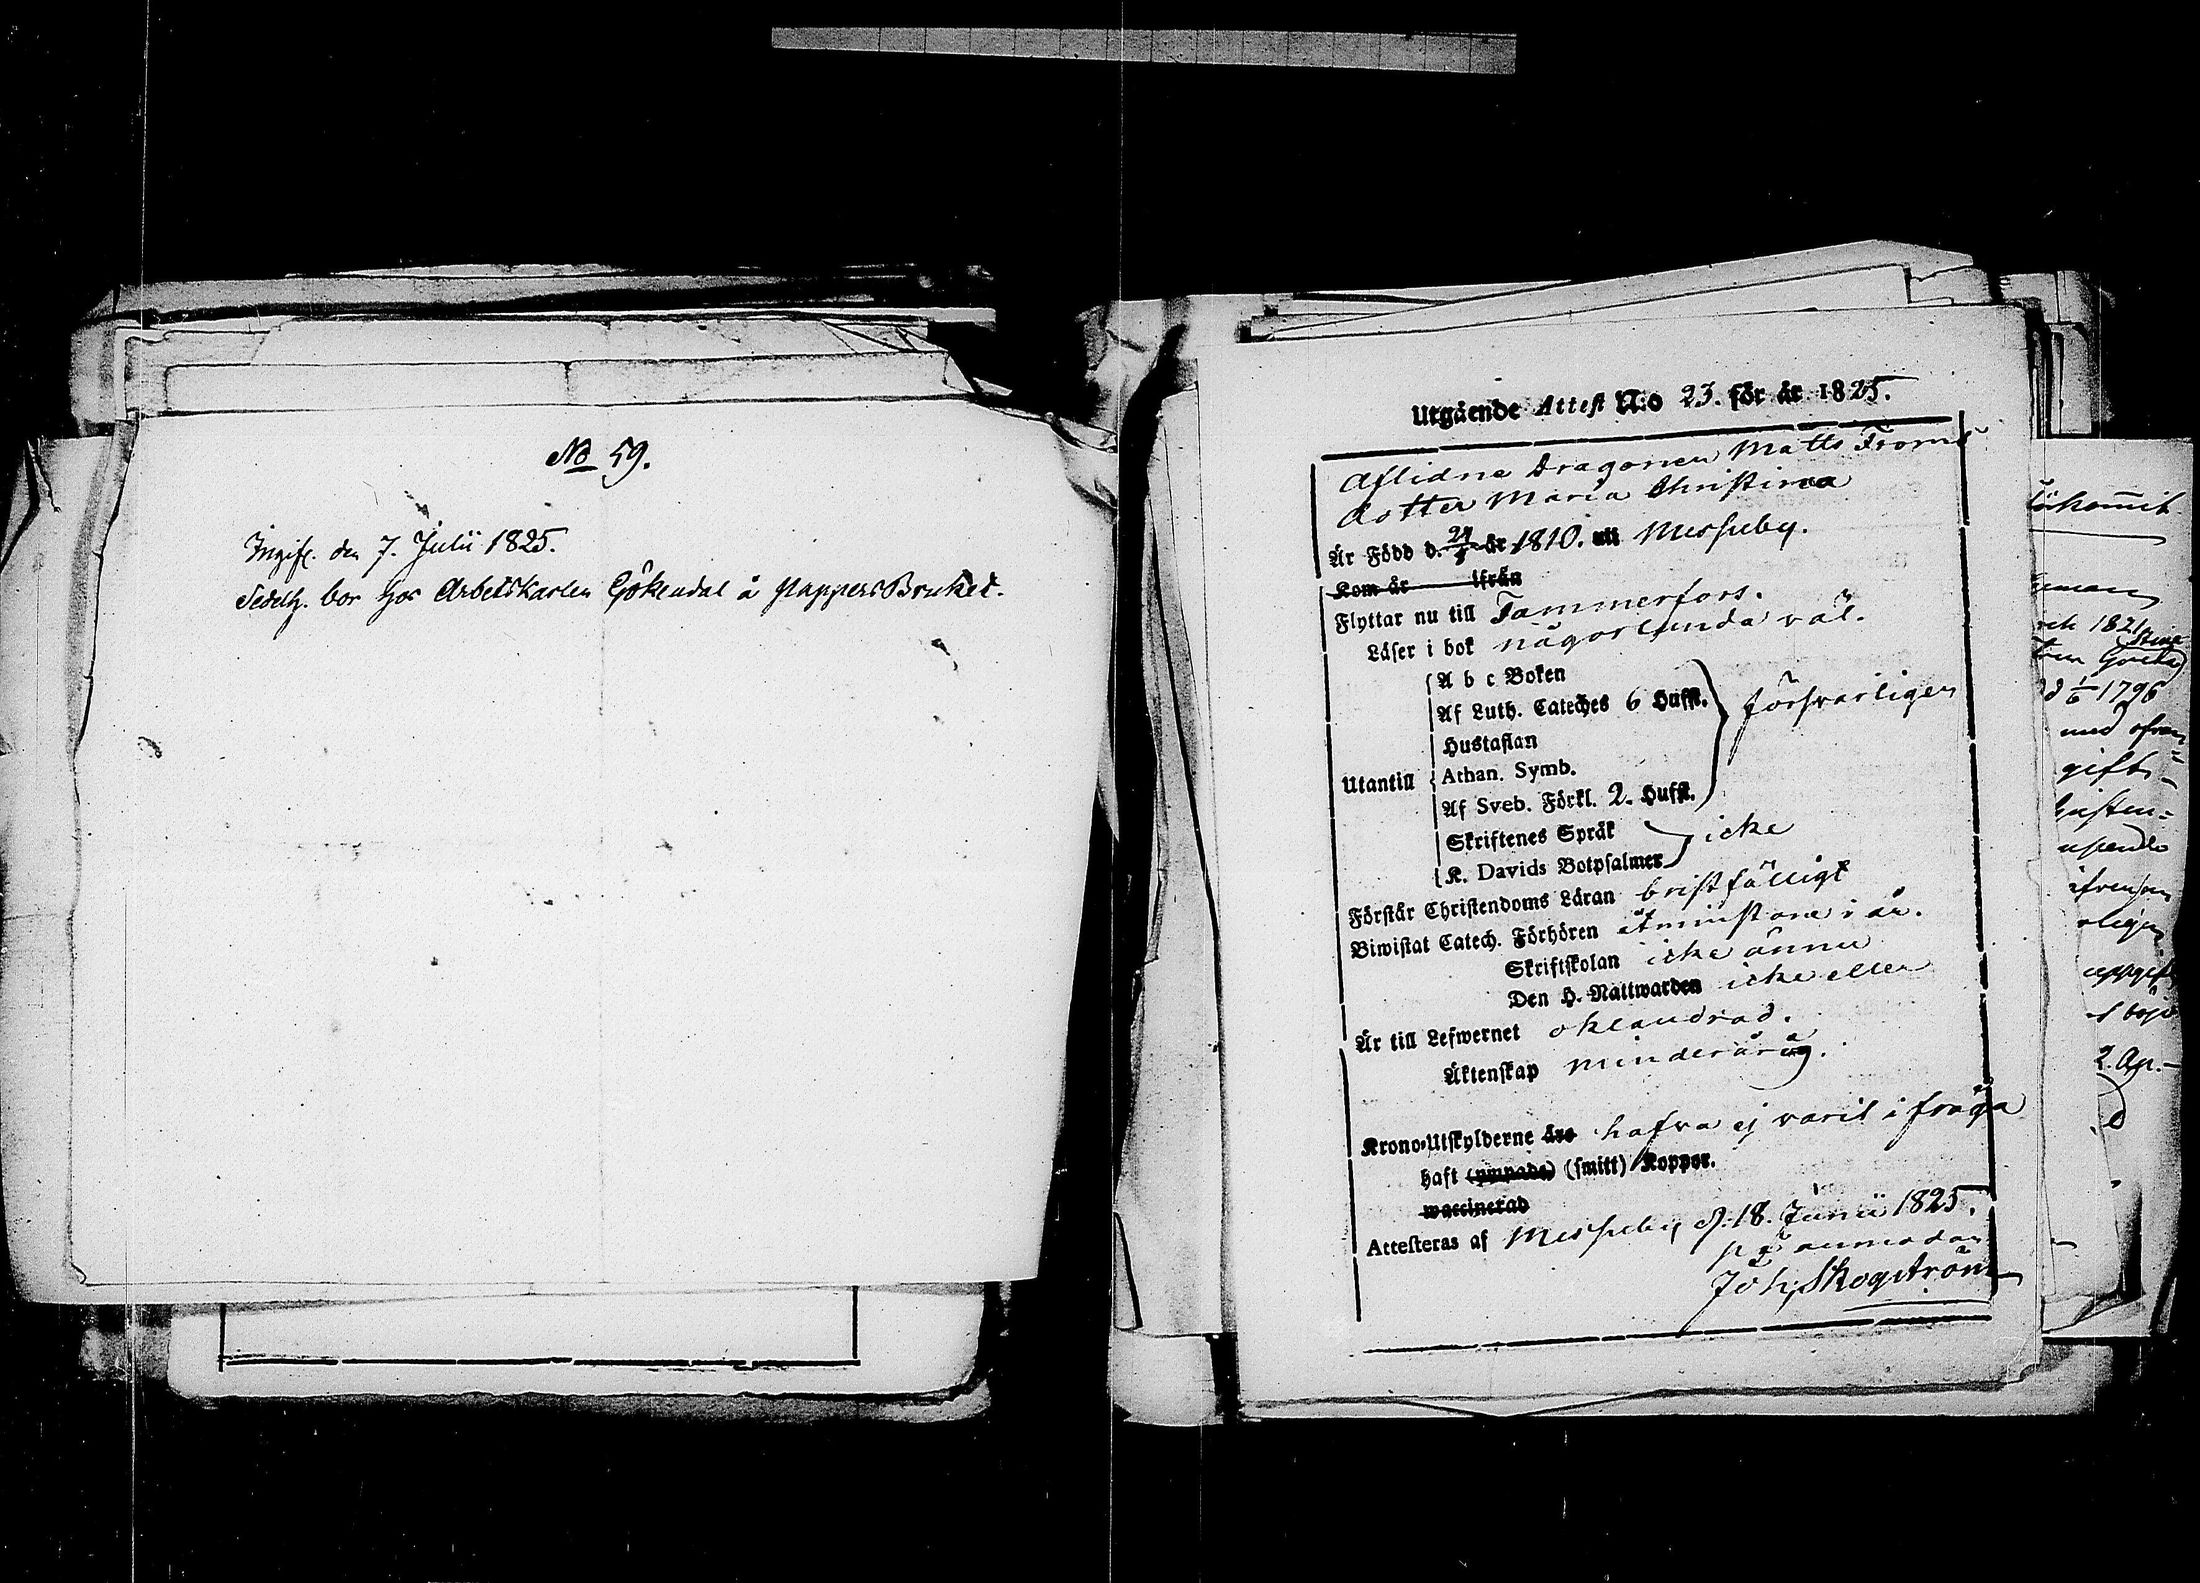 No 59.
Ingifv. den 7. Julii 1825.
Sedelh. bor hos Arbetskarlen Gökendal å PappersBruket.
Utgående Attest N:o 23. för år 1825.
Aflidne Dragonen Matts Froms
dotter Maria Christina
Är Född d. 24 år 1810. uti Messuby.
Kom år ifrån
Flyttar nu till Tammerfors.
Läser i bok någorlunda väl.
A b c Boken
Af Luth. Cateches 6 Hufst. försvarligen
Hustaflan
Utantill Athan. Symb.
Af Sveb. Förkl. 2. Hufst.
Skriftenes Språk icke
K. Davids Botpsalmer
Förstår Christendoms Läran bristfälligt
Biwistat Catech. Förhören åtminstone i år.
Skriftskolan icke ännu
Den H. Nattwarden icke eller
Är till Lefwernet oklandrad.
Äktenskap minderårig.
Krono-Utskylderne äro hafva ej varit i fråga
haft (ympade) (smitt) Koppor.
waccinerad
Attesteras af Messuby d. 18. Junii 1825.
på anmodan
Joh. Skogström
1821
1796
med ofvan
gift
2. Ap.